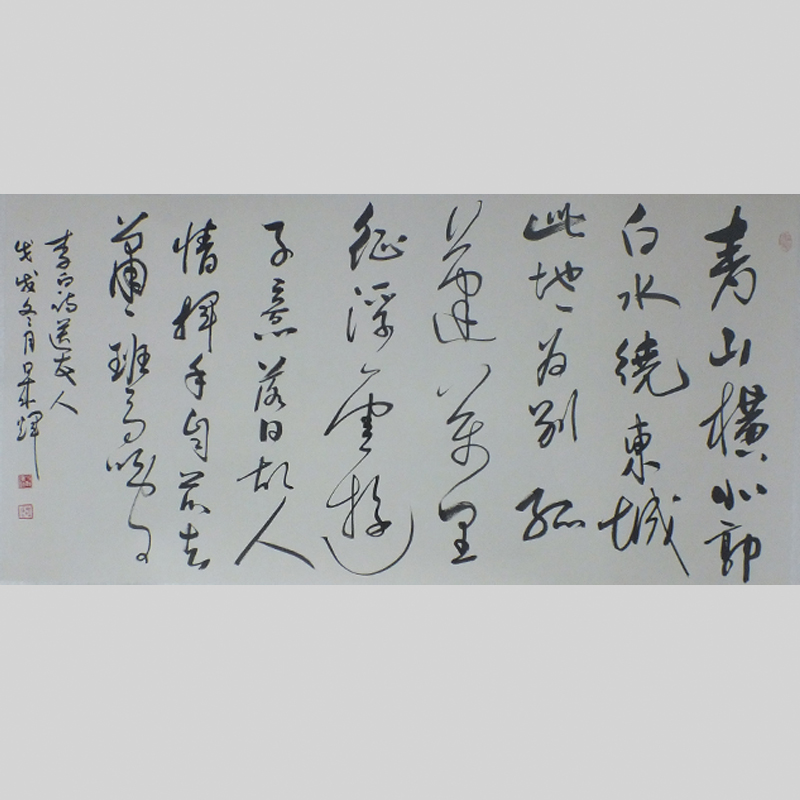 青山橫北郭
白水繞東城
此地為別孤
蓬萬里
征浮雲遊
子意落日故人
情揮手自茲去
蕭〻班馬鳴
李白詩送友人
戊戌冬月輝